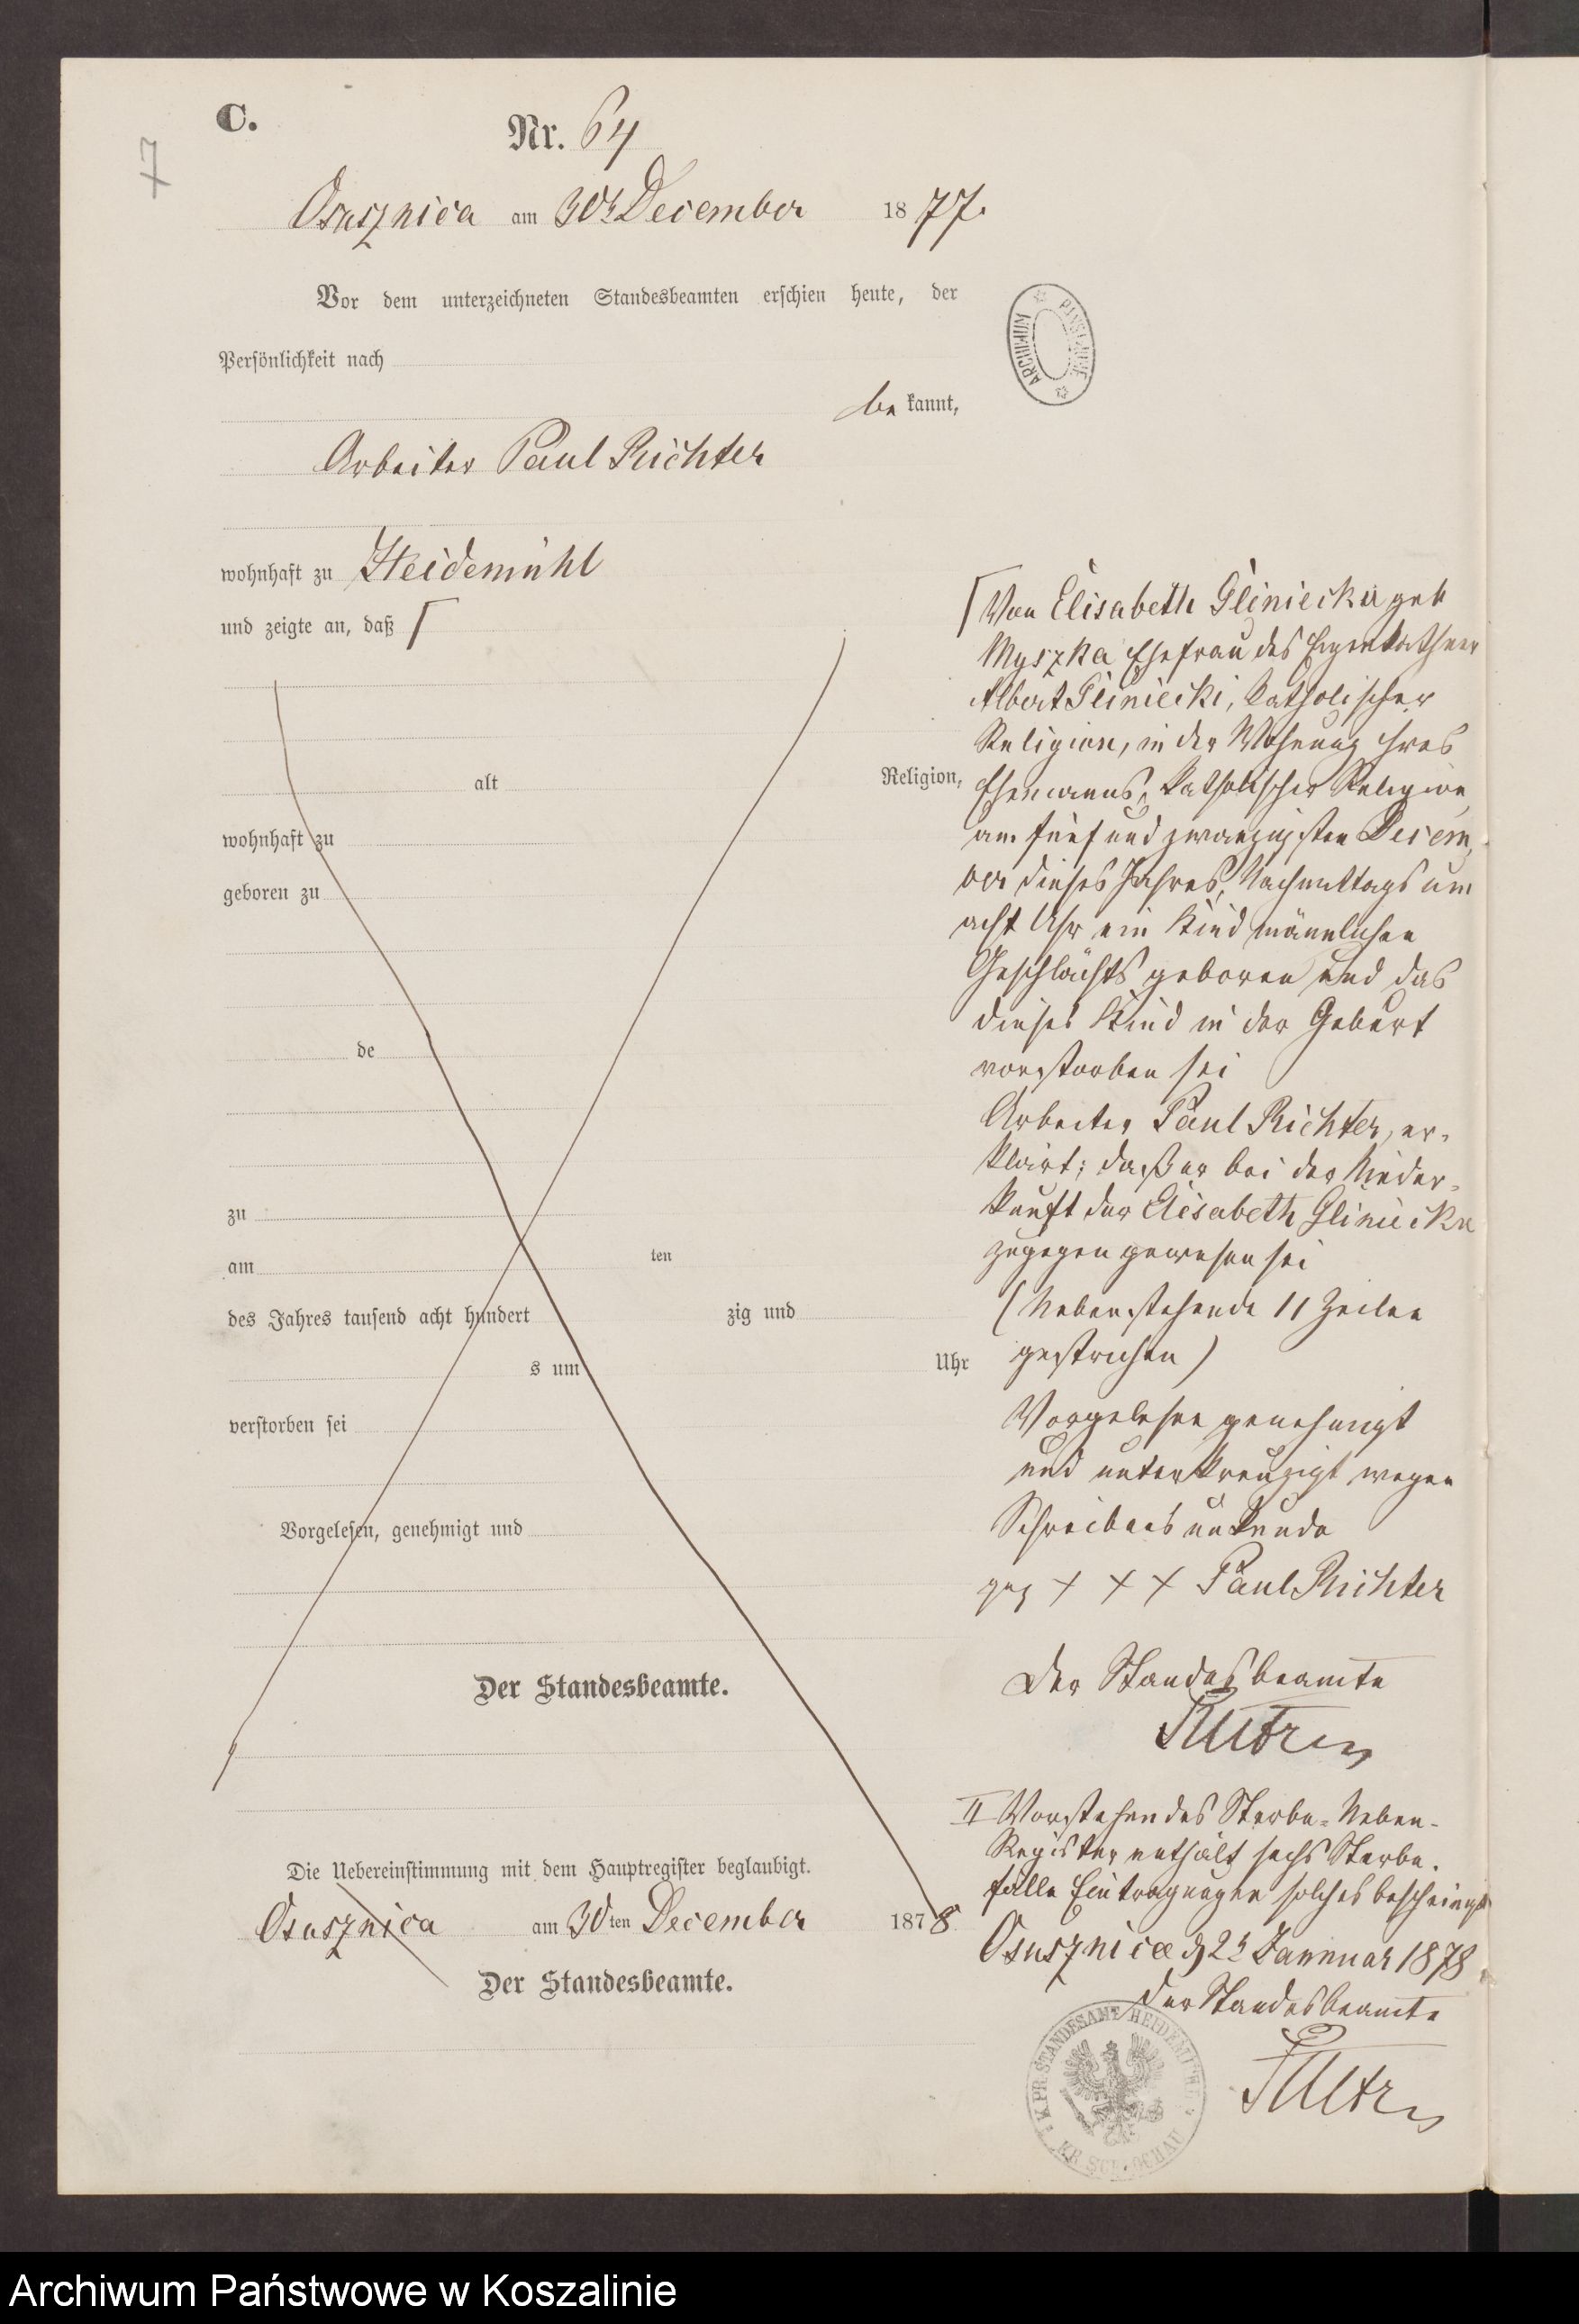 7
C.
Nr. 64
Osusznica am 30t December 1877.
Vor dem unterzeichneten Standesbeamten erschien heute, der
Persönlichkeit nach
be kannt,
Arbeiter Paul Richter
wohnhaft zu Heidemühl
und zeigte an, daß ⌈
alt Religion,
wohnhaft zu
geboren zu
de
zu
am ten
des Jahres tausend acht hundert zig und
s um Uhr
verstorben sei
Vorgelesen, genehmigt und
Der Standesbeamte.
Die Uebereinstimmung mit dem Hauptregister beglaubigt.
Osusznica am 30ten December 1878
Der Standesbeamte.
⌈ Von Elisabeth Gliniecka geb
Myszka Ehefrau des Eigenkathner
Albert Gliniecki, katholischer
Religion, in der Wohnung ihres
Ehemanns, katholischer Religion
am fünf und zwanzigsten Decem,
ber dieses Jahres, Nachmittags um
acht Uhr ein Kind männlichen
Geschlächts geboren und das
dieses Kind in der Geburt
verstorben sei
Arbeiter Paul Richter, er-
klärt; daß er bei der Nieder-
kunft der Elisabeth Gliniecka
zugegen gewesen sei
(Nebenstehende 11 Zeilen
gestrichen)
Vorgelesen genehmigt
und unterkreuzigt wegen
Schreibensunkunde
gez + + + Paul Richter
Der Standesbeamte
II Vorstehendes Sterbe-Neben-
Register enthält sechs Sterbe-
fälle Eintragungen solches bescheinigt
Osusznica d 2t Januar 1878
Der Standesbeamte
ARCHIWUM PAŃSTWOWE
K. PR. STANDESAMT HEIDEMÜHL
KR. SCHLOCHAU
Archiwum Państwowe w Koszalinie